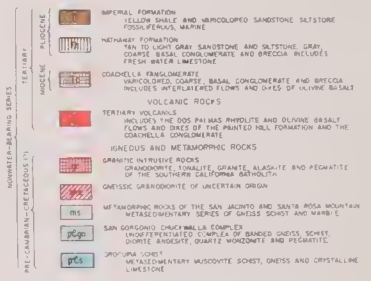 IMPERIAL FORMATION
YELLOW SHALE AND VARICOLORED SANDSTONE SILTSTONE
FOSSILIFEROUS, MARINE
HATHAWAY FORMATION
TAN TO LIGHT GRAY SANDSTONE AND SILTSTONE, GRAY,
COARSE BASAL CONGLOMERATE AND BRECCIA INCLUDES
FRESH WATER LIMESTONE
COACHELLA FANGLOMERATE
VARICOLORED, COARSE, BASAL CONGLOMERATE AND BRECCIA
INCLUDES INTERLAYERED FLOWS AND DIKES OF OLIVINE BASALT
VOLCANIC ROCKS
TERTIARY VOLCANICS
INCLUDES THE DOS PALMAS RHYOLITE AND OLIVINE BASALT
FLOWS AND DIKES OF THE PAINTED HILL FORMATION AND THE
COACHELLA CONGLOMERATE
IGNEOUS AND METAMORPHIC ROCKS
GRANITIC INTRUSIVE ROCKS
GRANODIORITE, TONALITE, GRANITE, ALASKITE AND PEGMATITE
OF THE SOUTHERN CALIFORNIA BATHOLITH
GNEISSIC GRANODIORITE OF UNCERTAIN ORIGIN
ms
METAMORPHIC ROCKS OF THE SAN JACINTO AND SANTA ROSA MOUNTAIN
METASEDIMENTARY SERIES OF GNEISS SCHIST AND MARBLE
SAN GORGONIO CHUCKWALLA COMPLEX
UNDIFFERENTIATED COMPLEX OF BANDED GNEISS, SCHIST,
DIORITE ANDESITE, QUARTZ MONZONITE AND PEGMATITE
OROCOPIA SCHIST
METASEDIMENTARY MUSCOVITE SCHIST, GNEISS AND CRYSTALLINE
LIMESTONE
NONWATER-BEARING SERIES
TERTIARY
PLIOCENE
MIOCENE
PRE-CAMBRIAN-CRETACEOUS (?)